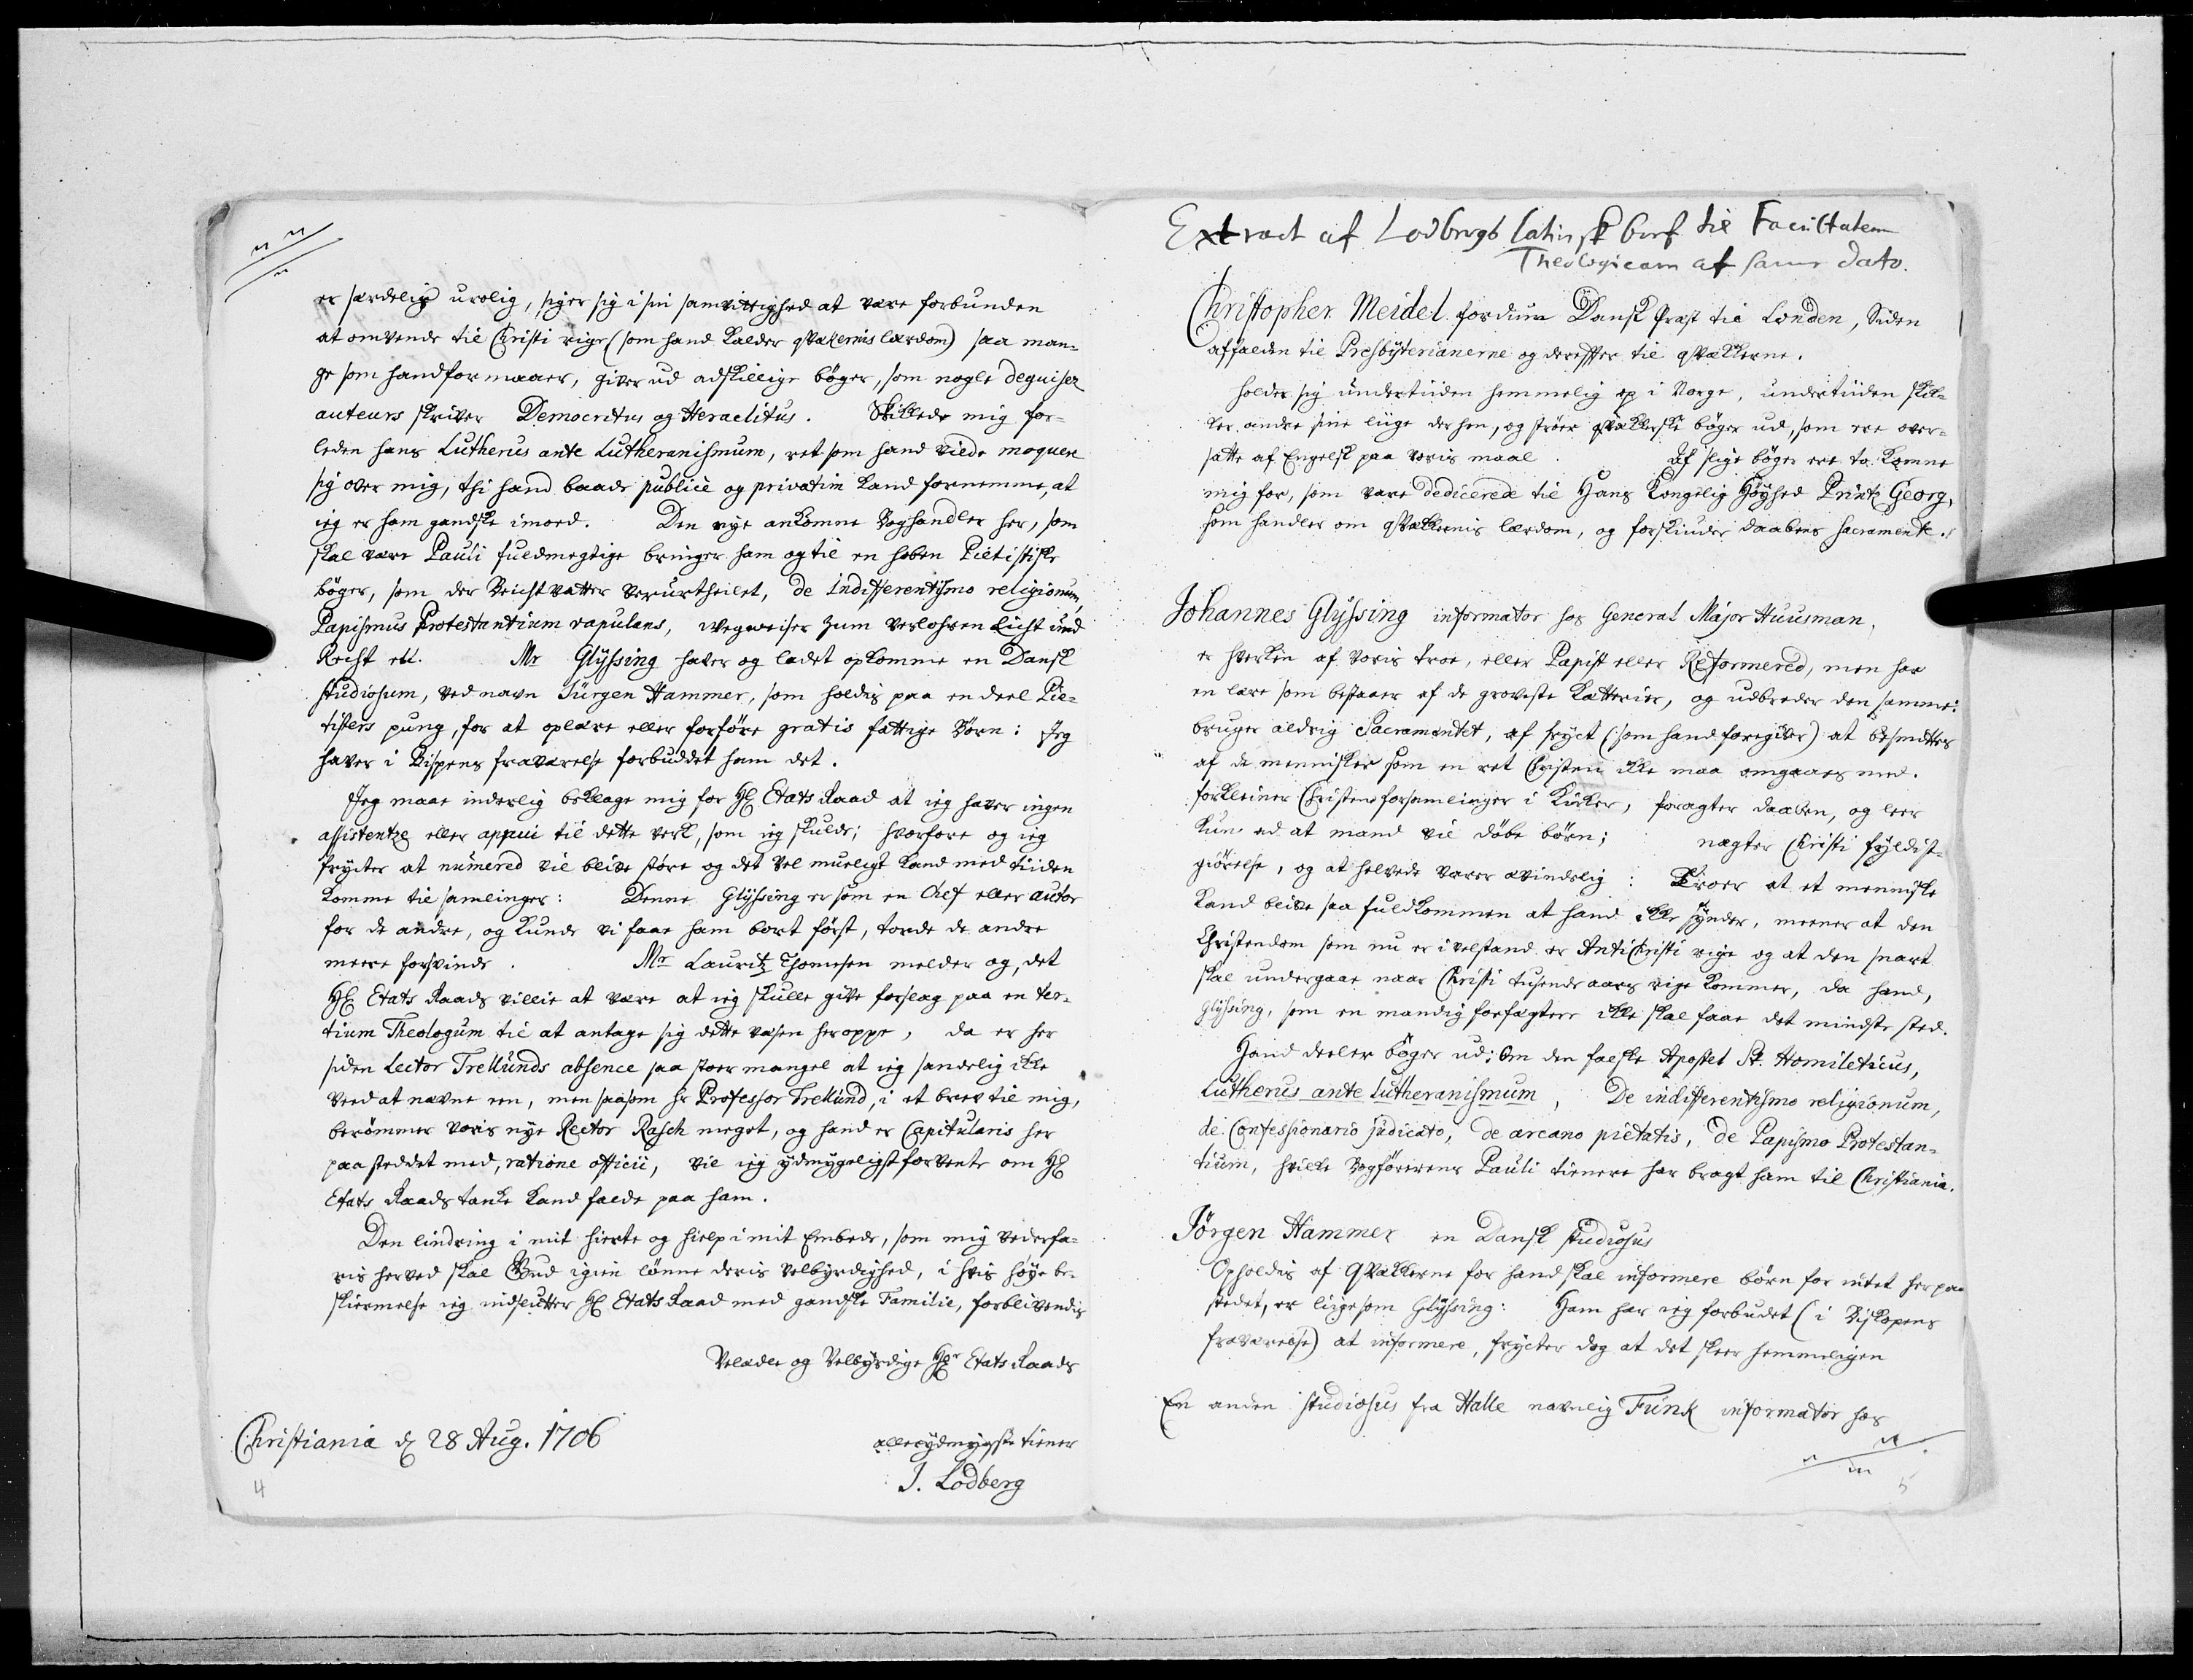 er særdelis urolig, siger sig i sin samvittighed at være forbunden
at omvende til Christi rige (som hand kalder qvækernis lærdom) saa man-
ge som hand formaaer, giver ud adskillige bøger, som nogle deguiser
auteurs skriver Democritus og Heraclitus. Skikkede mig for-
leden hans Lutherus ante Lutheranismum, ret som hand vilde moquere
sig over mig, thi hand baade publice og privatim kand fornemme, at
ieg er ham gandske imoed. Den nye ankomne Boghandler her, som
skal være Pauli fuldmegtige bringer ham og til en hoben Pietistiske
bøger, som der Beichtvatter verurtheilet, de indifferentismo religionum,
Papismus Protestantium vapulans, wegweiser zum verlohren Licht und
Recht etc. Mr Glÿssing haver og ladet opkomme en Dansk
studiosum, ved navn Jürgen Hammer, som holdis paa en deel Pie-
tisters pung, for at oplære eller forføre gratis fattige Børn: Jeg
haver i Bispens fraværelse forbuddet ham det.
Jeg maae inderlig beklage mig for H: Etats Raad at ieg haver ingen
assistentze eller appui til dette verk, som ieg skulde; hvorfore og ieg
frÿcter at numered vil blive støre og det vel mueligt kand med tiiden
komme til samlinger: Denne Glÿssing er som en Chef eller autor
for de andre, og kunde vi faae ham bort først, torde de andre
meere forsvinde. Mr Lauritz Thomesen melder og, det
H: Etats Raads villie at være at ieg skulle give forslag paa en ter-
tium Theologum til at antage sig dette væsen her oppe, da er her
siden Lector Trellunds absence saa stoer mangel at ieg sandelig ikke
veed at nævne een, men saasom hr Professor Trellund, i et brev til mig,
berømmer voris nye Rector Rasch meget, og hand er Capitularis her
paa steddet med, ratione officii, vil ieg ydmygeligst forvente om H:
Etats Raads tanke kand falde paa ham.
Den lindring i mit hierte og hielp i mit Embede, som mig vederfa-
ris herved skal Gud igien lønne deris velbÿrdighed, i hvis høÿe be-
skiermelse ieg indslutter H: Etats Raad med gandske Familie, forblivendis
Velædle og Velbÿrdige Hr Etats Raads
Christiania d: 28 Aug. 1706
allerÿdmygste tiener
J. Lodberg
4
Extract af Lodbergs latinsk bref til Facultatem
Theologicam af samme dato.
Christopher Meidel fordum Dansk Præst til London, Siden
affalden til Presbÿterianerne og derefter til qvækkerne.
holder sig undertiiden hemmelig op i Norge, undertiiden skik-
ker andre sine liige der hen, og strøer qvækkerske bøger ud, som ere over-
satte af Engelsk paa voris maal. Af slige bøger ere to komne
mig for, som vare dedicerede til Hans Kongelig Høÿhed Printz Georg,
som handler om qvækkernis lærdom, og forskiuder daabens sacramente.
Johannes Glÿssing informator hos General Major Huusman,
er hverken af voris troe, eller Papist eller Reformered, men har
en lære som bestaaer af de groveste kætterier, og udbreder den samme:
bruger aldrig Sacramentet, af frÿct (som hand foregiver) at besmittes
af de mennisker som en ret Christen ikke maa omgaaes med.
forkleiner Christens forsamlinger i Kirker, foragter daaben, og leer
kun ad at mand vil døbe børn; nægter Christi fÿldist-
giørelse, og at helvede varer ævindelig: Troer at et menniske
kand blive saa fuldkommen at hand ikke sÿnder, meener at den
Christendom som nu er i velstand er AntiChristi rige og at den snart
skal undergaae naar Christi tusende aars rige kommer, da hand,
Glÿssing, som en mandig forfægtere ikke skal faae det mindste sted.
Hand deeler bøger ud: Om den falske Apostel St. Homileticus,
Lutherus ante Lutheranismum, De indifferentismo religionum,
de Confessionario judicato, de arcano pietatis, de Papismo Protestan-
tium, hvilke Bogførerens Pauli tienere har bragt ham til Christiania.
Jörgen Hammer en Dansk studiosus
Opholdes af Qvækkerne for hand skal informere børn for intet her paa
stedet, er liigesom Glÿssing: Ham har ieg forbudet (i Biskopens
fraværelse) at informere, frÿcter dog at det skeer hemmeligen
En anden studiosus fra Halle navnlig Funk informator hos
5